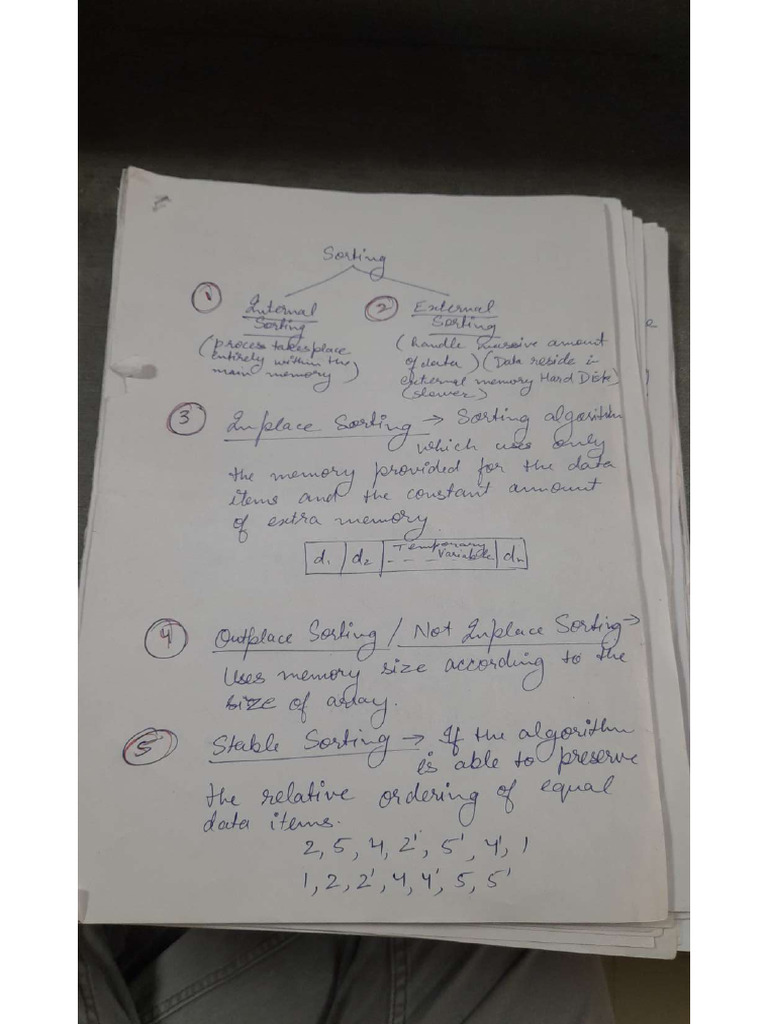 Sorting
① Internal Sorting
(process takes place
entirely within the
main memory)
② External Sorting
(handle massive amount
of data) (Data reside in
external memory Hard Disk)
(slower)
③ Inplace Sorting → Sorting algorithm
which uses only
the memory provided for the data
items and the constant amount
of extra memory.
d₁ d₂ Temporary Variable - - - - dn
④ Outplace Sorting / Not Inplace Sorting →
Uses memory size according to the
size of array.
⑤ Stable Sorting → If the algorithm
is able to preserve
the relative ordering of equal
data items.
2, 5, 4, 2', 5', 4', 1
1, 2, 2', 4, 4', 5, 5'